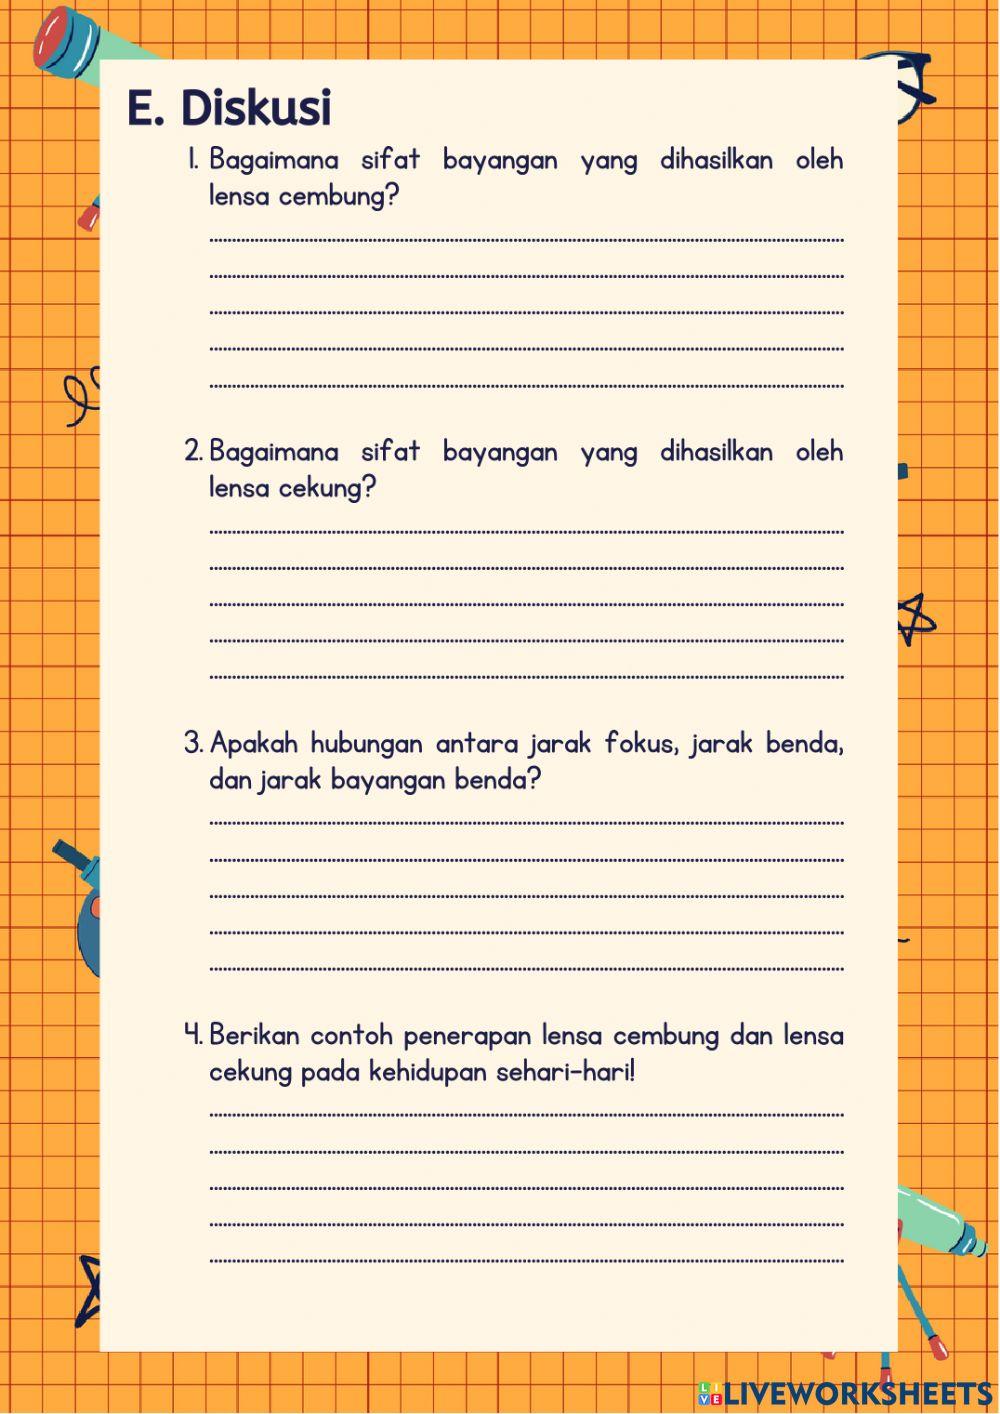 E. Diskusi
1. Bagaimana sifat bayangan yang dihasilkan oleh
lensa cembung?
2. Bagaimana sifat bayangan yang dihasilkan oleh
lensa cekung?
3. Apakah hubungan antara jarak fokus, jarak benda,
dan jarak bayangan benda?
4. Berikan contoh penerapan lensa cembung dan lensa
cekung pada kehidupan sehari-hari!
LIVE LIVEWORKSHEETS